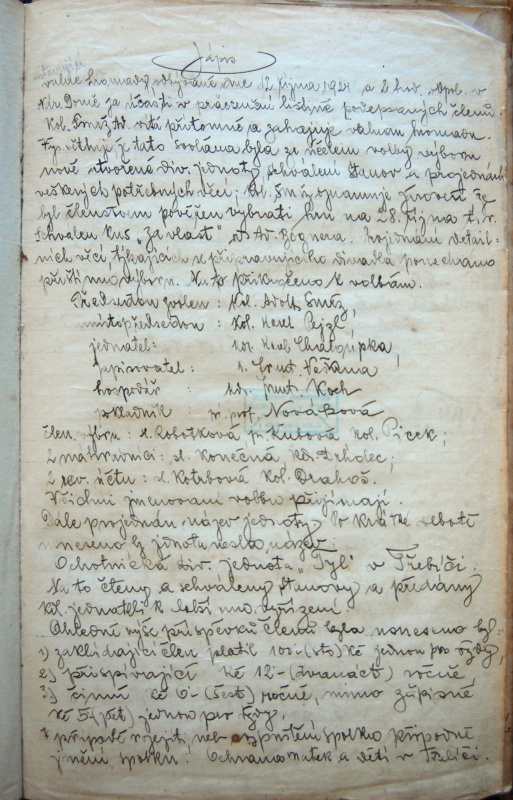 Zápis
ustavující
valné hromady, odbývané dne 12. října 1921 a 2 hod. odpol. v
Nár. Domě za účasti v pracsenční listině podepsaných členů.
Kol. Smrž Ad. vítá přítomné a zahajuje valnou hromadu.
tato svolána byla za účelem volby výboru
nově utvořené div. jednoty, schválení stanov a projednání
veškerých potřebných věcí; kol. Smrž oznamuje zároveň že
byl členstvem pověřen vybrati hru na 28. října t. r.
Schválen kus "Za vlast" od Ad. Bognera. Projednání detail-
ních věcí, týkajících se připravujícího divadla ponecháno
příštímu výboru. Na to přikročeno k volbám.
Předsedou zvolen: Kol. Adolf Smrž,
místopředsedou: Kol. Karel Pejzl,
jednatel: kol. Karel Chaloupka,
zapisovatel: k. Frant. Veškrna
hospodář: kol. Frant. Koch
pokladník Nováková
člen. výboru: sl. Robotková, pí. Kubová, kol. Picek;
2 náhradníci: sl. Konečná kol. Drhdec;
2 rev. účtů: sl. Kotrbová Kol. Drahoš.
Všichni jmenovaní volbu přijímají.
Dále projednán název jednoty. Po krátké debatě
usneseno by jednota nesla název:
Ochotnická div. jednota "Tyl" v Třebíči.
Na to čteny a schváleny stanovy a předány
kol. jednateli k dalšímu vyřízení.
Ohledně výše příspěvků členů bylo usneseno by:
1) zakládající člen platil 100.- (sto) Kč jednou pro vždy,
2) přispívající Kč 12.- (dvanáct) ročně,
3) činní Kč 6.- (šest) ročně, mimo zápisné
Kč 5 (pět) jednou pro vždy.
V případě rozejití neb rozpuštění spolku připadne
jmění spolku: Ochrana matek a dětí v Třebíči.